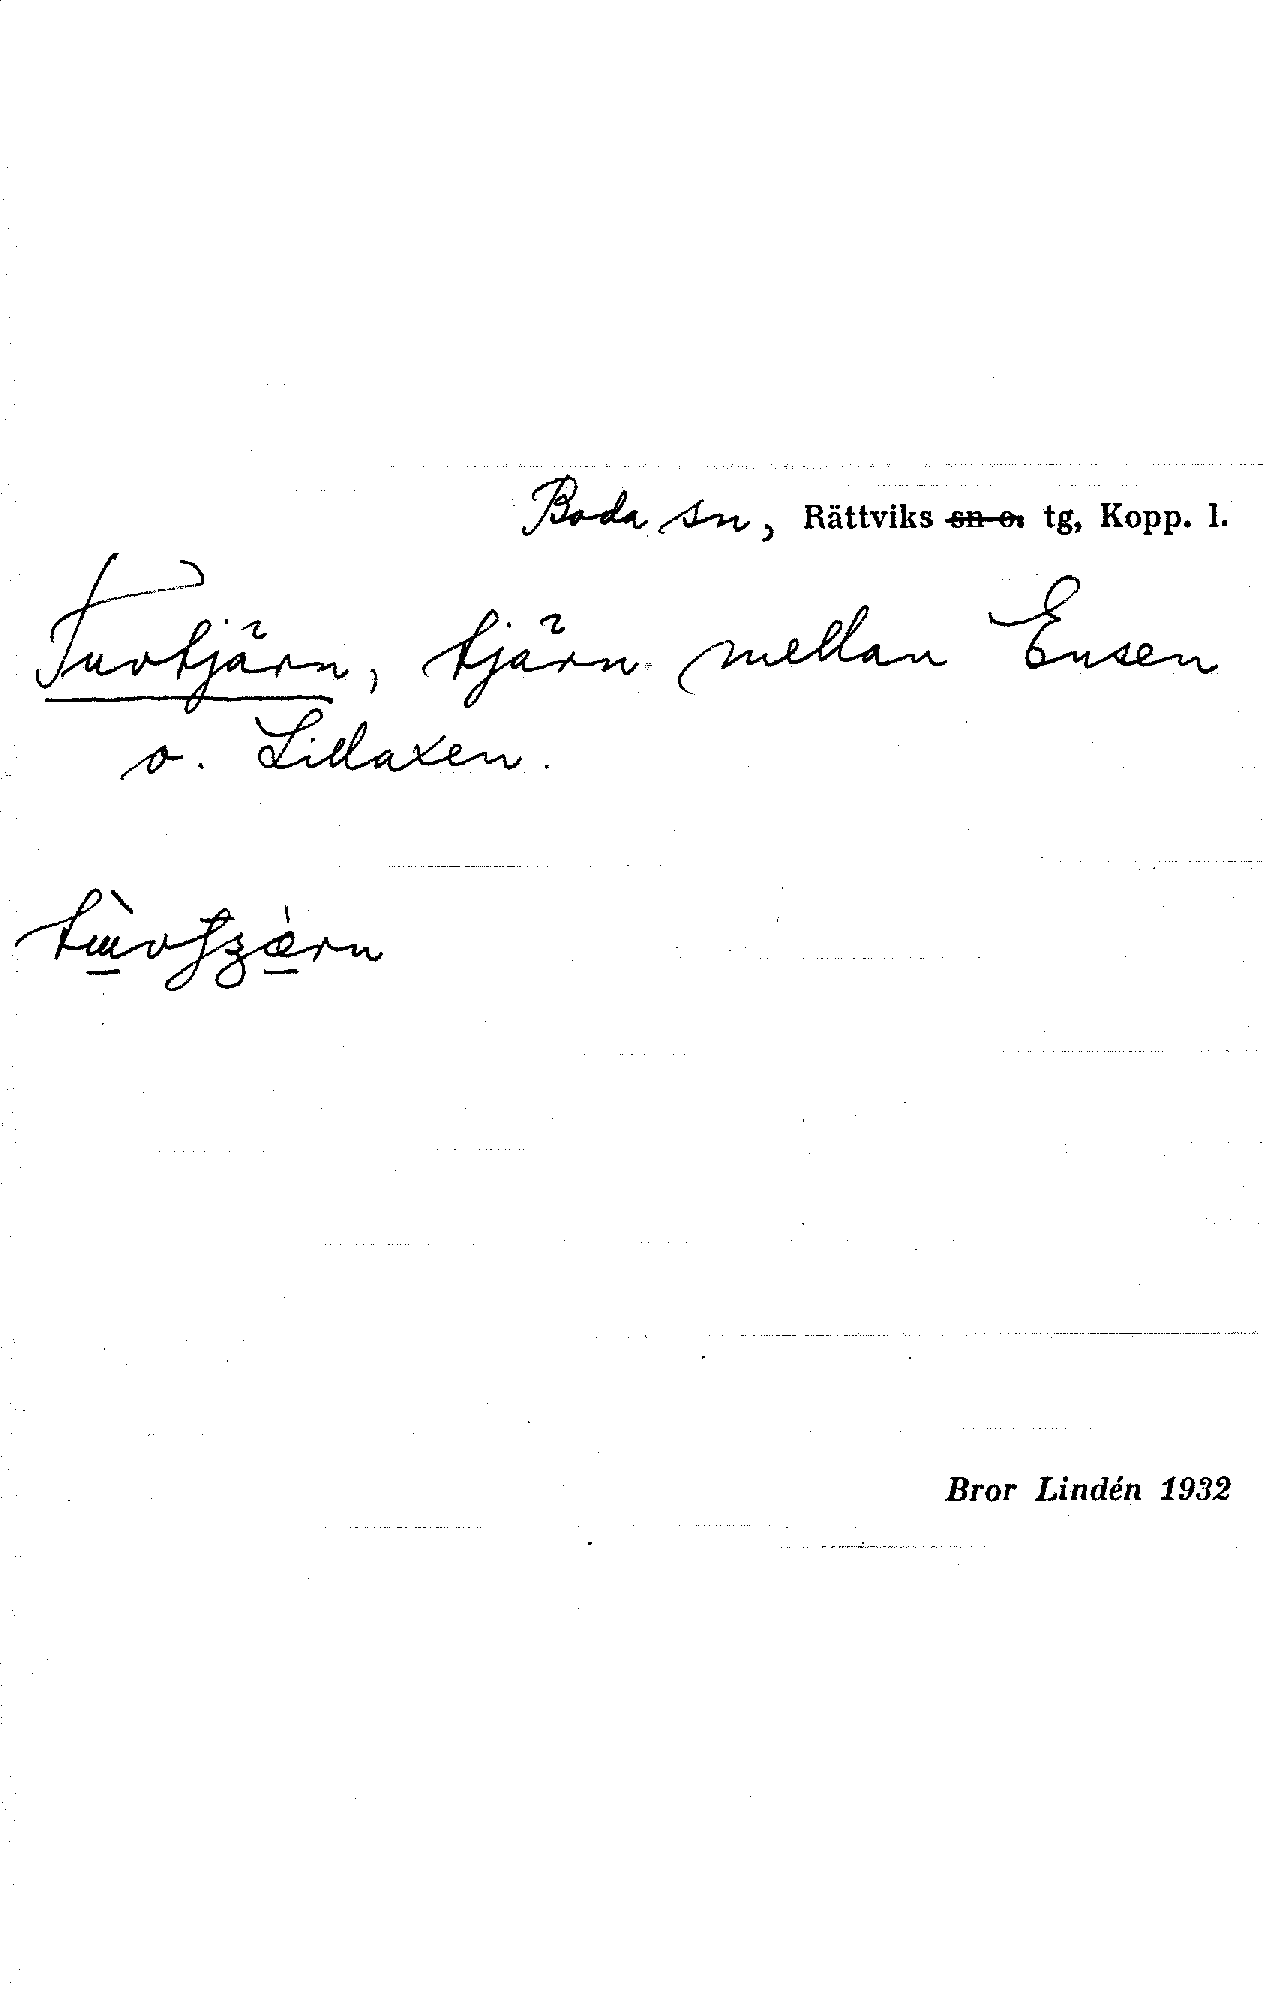 Boda sn, Rättviks sn o. tg, Kopp. l.
Tuvtjärn, tjärn mellan Ensen
o. Lillaxen.
Bror Lindén 1932